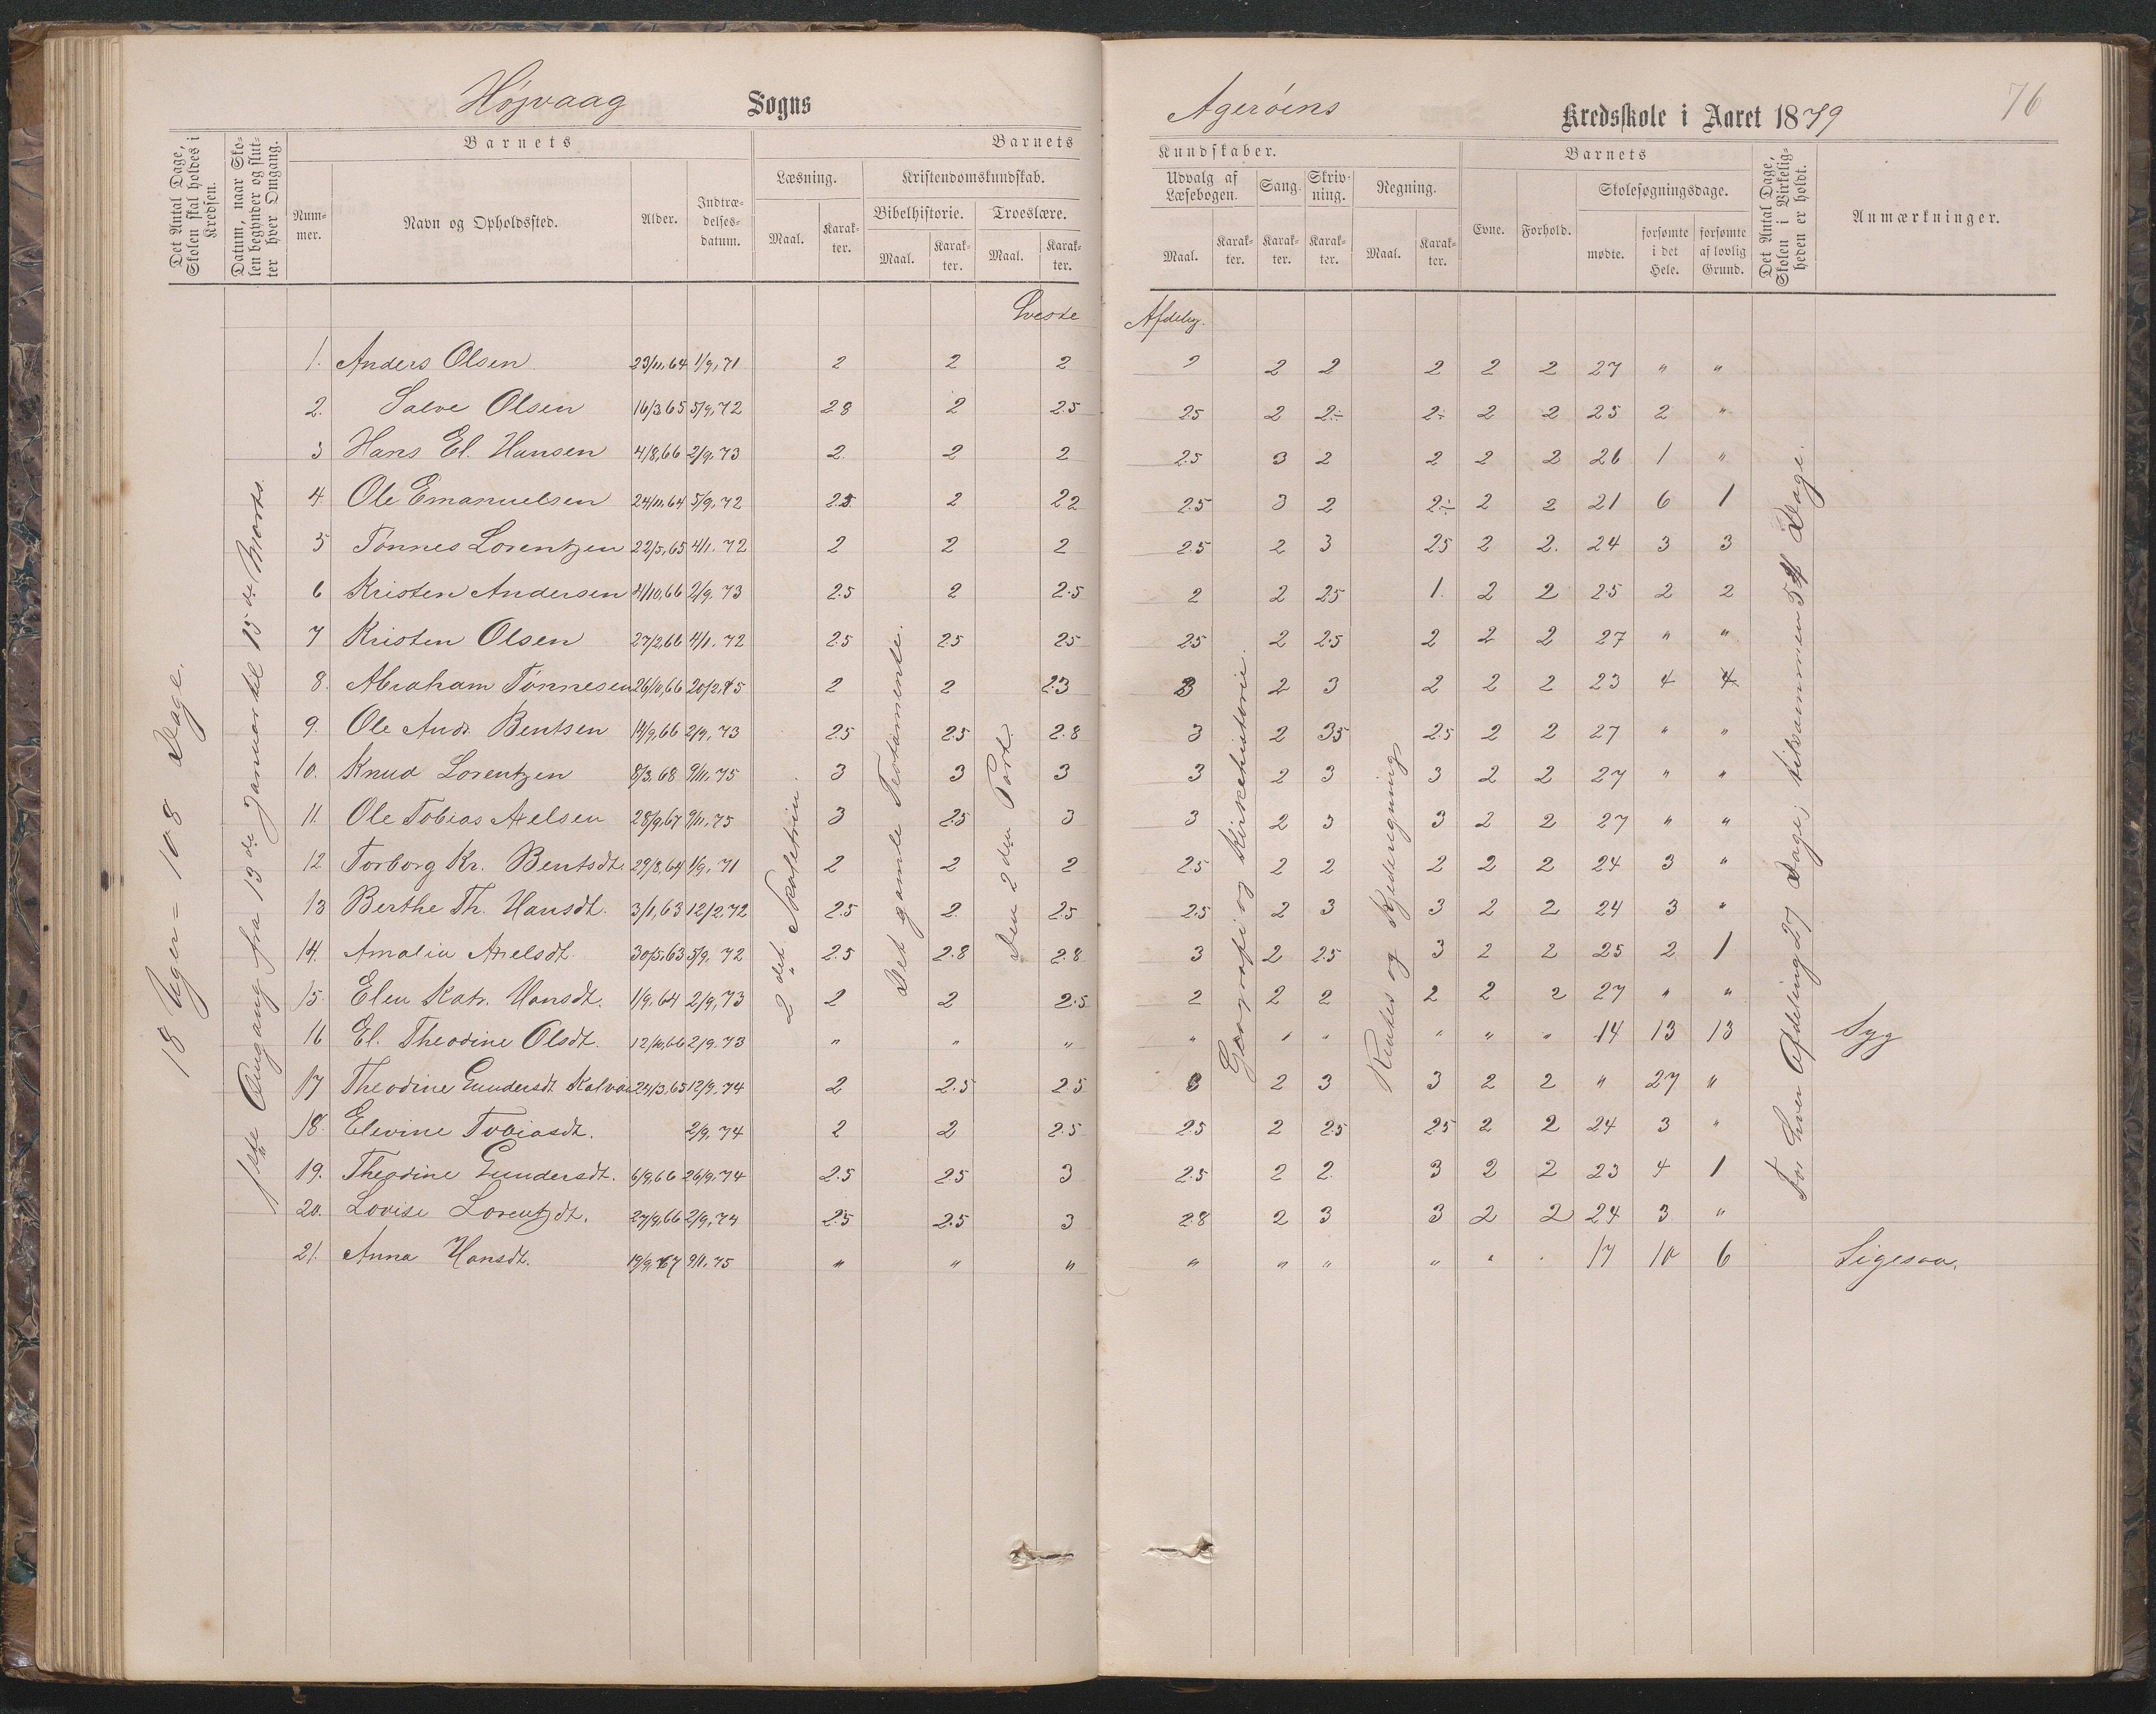 Højvaag Sogns Agerøens Kredsskole i Aaret 1879 76
Det Antal Dage, Skolen skal holdes i Kredsen.
Datum, naar Skolen begynder og slutter hver Omgang.
Barnets
Nummer.
Navn og Opholdssted.
Alder.
Indtrædelsesdatum.
Barnets Kundskaber.
Læsning.
Maal.
Karakter.
Kristendomskundskab.
Bibelhistorie.
Maal.
Karakter.
Troeslære.
Maal.
Karakter.
Udvalg af Læsebogen.
Maal.
Karakter.
Sang.
Karakter.
Skrivning.
Karakter.
Regning.
Maal.
Karakter.
Barnets
Evne.
Forhold.
Skolesøgningsdage.
mødte.
forsømte i det Hele.
forsømte af lovlig Grund.
Det Antal Dage, Skolen i Virkeligheden er holdt.
Anmærkninger.
18 Uger = 108 Dage.
1ste Omgang fra 13de Januar til 15de Marts.
2det
Det gamle Testamente.
Den 2den Part.
Geografi og Kirkehistorie.
og Kjederegning
For hver Afdeling 27 Dage; tilsammen 54 Dage.
Øveste Afdeling.
1. Anders Olsen 23/11,64 1/9,71 2 2 2 2 2 2 2 2 2 27 " "
2. Salve Olsen 16/3 65 5/9,72 2.8 2 2.5 2.5 2 2÷ 2÷ 2 2 25 2 "
3 Hans El. Hansen 4/8,66 2/9.73 2 2 2 2.5 3 2 2 2 2 26 1 "
4. Ole Emanuelsen 24/11,64 5/9,72 2.5 2 22 2.5 3 2 2÷ 2 2 21 6 1
5 Tønnes Lorentzen 22/5,65 4/1.72 2 2 2 2.5 2 3 25 2 2. 24 3 3
6 Kristen Andersen 4/10,66 2/9.73 2.5 2 2.5 2 2 25 1. 2 2 25 2 2
7 Kristen Olsen 27/2,66 4/1.72 2.5 25 25 25 2 2.5 2 2 2 27 " "
8. Abraham Tønnesen 26/10,66 20/2.75 2 2 2.3 3 2 3 2 2 2 23 4 4
9. Ole Andr. Bentsen 14/9,66 2/9,73 2.5 2.5 2.8 3 2 35 2.5 2 2 27 " "
10. Knud Lorentzen 8/3.68 9/11.75 3 3 3 3 2 3 3 2 2 27 " "
11. Ole Tobias Axelsen 28/9,67 9/11.75 3 2.5 3 3 2 3 3 2 2 27 " "
12 Torborg Kr. Bentsdt. 29/8,64 1/9,71 2 2 2 2.5 2 2 2 2 2 24 3 "
13 Berthe Th. Hansdt. 3/1,63 12/2 72 2.5 2. 2.5 2.5 2 3 3 2 2 24 3 "
14. Amalia Axelsdt. 30/5,63 5/9.72 2.5 2.8 2.8 3 2 2.5 3 2 2 25 2 1
15. Elen Katr. Hansdt. 1/9.64 2/9,73 2 2 2.5 2 2 2 2 2 2 27 " "
16 El. Theodine Olsdt. 12/10,66 2/9.73 " " " " " " " " " 14 13 13 Syg
17 Theodine Gundersdt. 24/3,65 12/9.74 2 2.5 2.5 2 3 3 2 2 " 27 "
18. Elevine Tobiasdt. 2/9.74 2 2 2.5 2.5 2 2.5 25 2 2 24 3 "
19. Theodine Gundersdt. 6/9,66 26/9,74 2.5 2.5 3 2.5 2 2. 3 2 2 23 4 1
20. Lovise Lorentzdt. 27/9,66 2/9,74 2.5 2.5 3 2.8 2 3 3 2 2 24 3 "
21. Anna Hansdt. 9/11.75 " " " " " " " " " 17 10 6 Ligesaa.